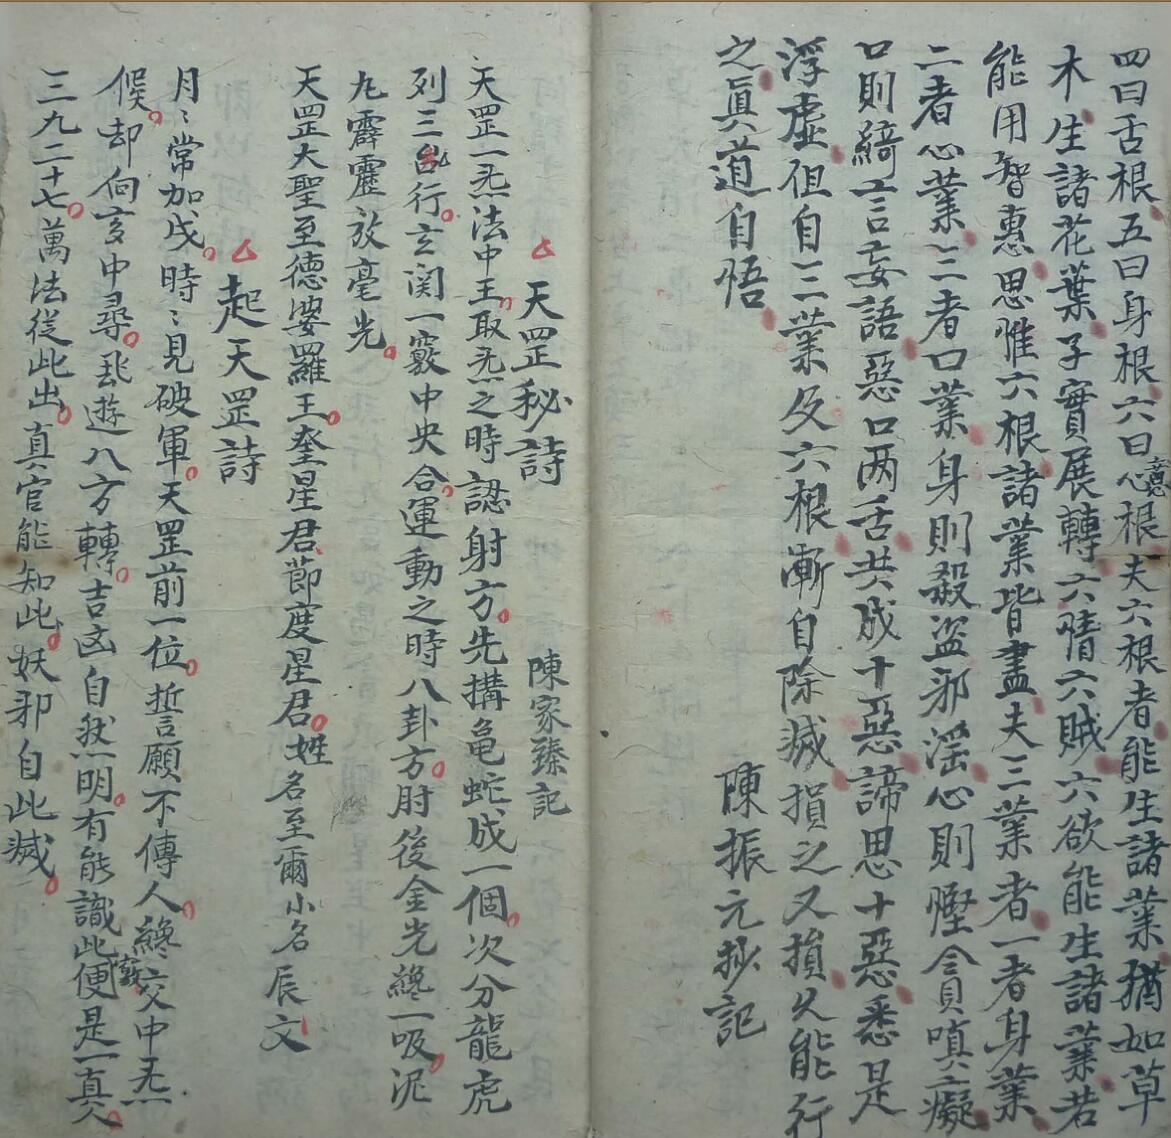 四曰舌根五曰身根六曰心意根夫六根者能生諸業猶如草
木生諸花葉子實展轉六情六賊六欲能生諸業若
能用智惠思惟六根諸業皆盡夫三業者一者身業
二者心業三者口業身則殺盜邪淫心則慳貪嗔癡
口則綺言妄語惡口两舌共成十惡諦思十惡悉是
浮虛但自三業及六根漸自除滅損之又損久能行
之真道自悟
陳振元抄記
天罡秘詩
陳家臻記
天罡一炁法中王取炁之時認射方先搆龜蛇成一個次分龍虎
列三台行玄関一竅中央合運動之時八卦方肘後金光纔一吸泥
丸霹靂放毫光
天罡大聖至德婆羅王奎星君節度星君姓名至爾小名辰文
起天罡詩
月〻常加戌時〻見破軍天罡前一位誓願不傳人纔交中炁
候却向亥中尋乱遊八方轉吉凶自然明有能識此竅便是一真人
三九二十七萬法從此出真官能知此妖邪自此滅